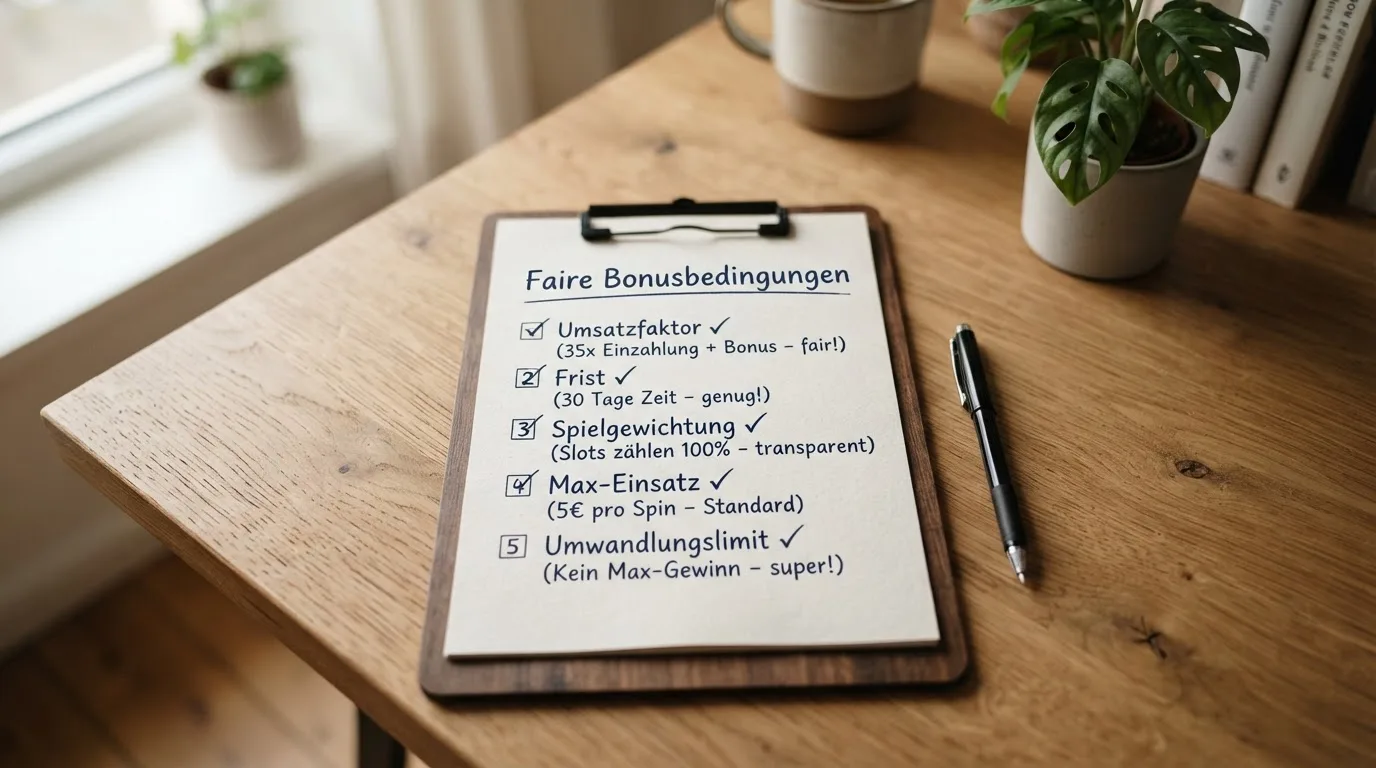 Faire Bonusbedingungen
Umsatzfaktor ✓
(35x Einzahlung + Bonus – fair!)
2 Frist ✓
(30 Tage Zeit – genug!)
3 Spielgewichtung ✓
(Slots zählen 100% – transparent)
4 Max-Einsatz ✓
(5€ pro Spin – Standard)
5 Umwandlungslimit ✓
(Kein Max-Gewinn – super!)